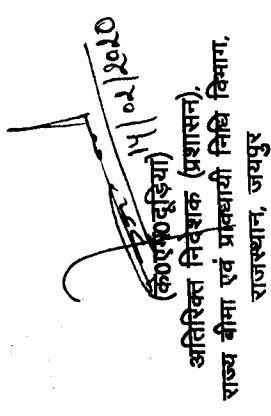 14/02/2020
(के0एम0दूड़िया)
अतिरिक्त निदेशक (प्रशासन),
राज्य बीमा एवं प्रावधायी निधि विभाग,
राजस्थान, जयपुर